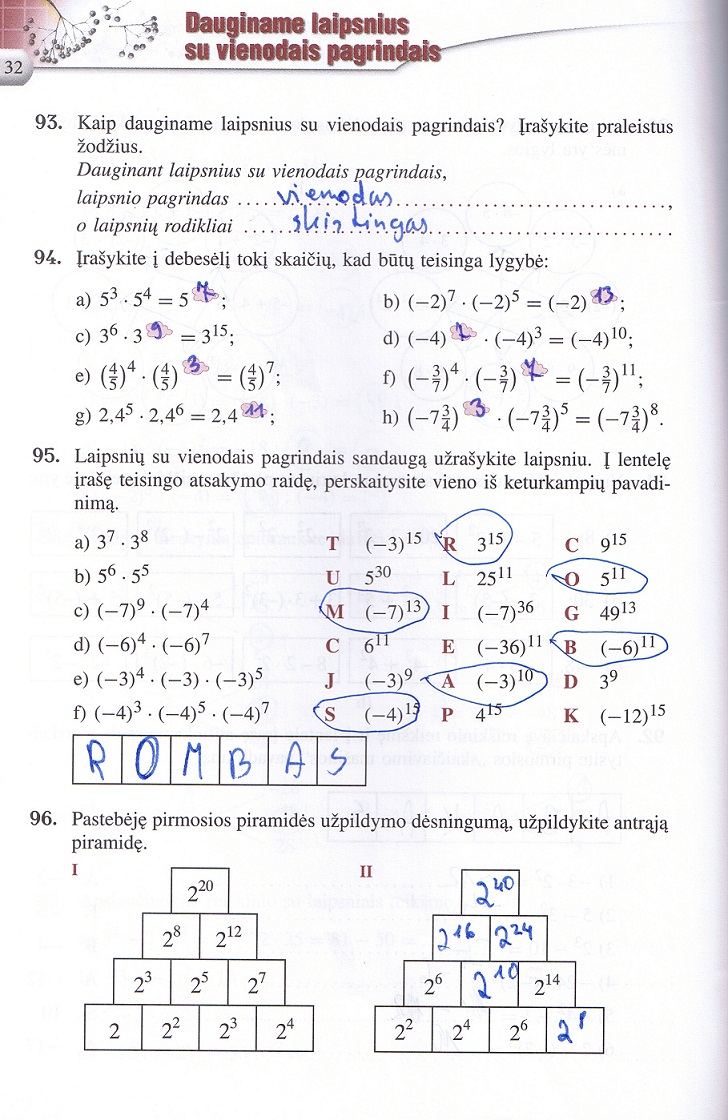 32
Dauginame laipsnius
su vienodais pagrindais
93. Kaip dauginame laipsnius su vienodais pagrindais? Įrašykite praleistus
žodžius.
Dauginant laipsnius su vienodais pagrindais,
laipsnio pagrindas ..... vienodas ..............................,
o laipsnių rodikliai ...... skirtingas ..............................
94. Įrašykite į debesėlį tokį skaičių, kad būtų teisinga lygybė:
a) 5³ · 5⁴ = 5⁷; b) (−2)⁷ · (−2)⁵ = (−2)¹³;
c) 3⁶ · 3⁹ = 3¹⁵; d) (−4)⁷ · (−4)³ = (−4)¹⁰;
e) (4/5)⁴ · (4/5)³ = (4/5)⁷; f) (−3/7)⁴ · (−3/7)⁷ = (−3/7)¹¹;
g) 2,4⁵ · 2,4⁶ = 2,4¹¹; h) (−7 3/4)³ · (−7 3/4)⁵ = (−7 3/4)⁸.
95. Laipsnių su vienodais pagrindais sandaugą užrašykite laipsniu. Į lentelę
įrašę teisingo atsakymo raidę, perskaitysite vieno iš keturkampių pavadi-
nimą.
a) 3⁷ · 3⁸ T (−3)¹⁵ R 3¹⁵ C 9¹⁵
b) 5⁶ · 5⁵ U 5³⁰ L 25¹¹ O 5¹¹
c) (−7)⁹ · (−7)⁴ M (−7)¹³ I (−7)³⁶ G 49¹³
d) (−6)⁴ · (−6)⁷ C 6¹¹ E (−36)¹¹ B (−6)¹¹
e) (−3)⁴ · (−3) · (−3)⁵ J (−3)⁹ A (−3)¹⁰ D 3⁹
f) (−4)³ · (−4)⁵ · (−4)⁷ S (−4)¹⁵ P 4¹⁵ K (−12)¹⁵
R O M B A S
96. Pastebėję pirmosios piramidės užpildymo dėsningumą, užpildykite antrąją
piramidę.
I II
2²⁰ 2⁴⁰
2⁸ 2¹² 2¹⁶ 2²⁴
2³ 2⁵ 2⁷ 2⁶ 2¹⁰ 2¹⁴
2 2² 2³ 2⁴ 2² 2⁴ 2⁶ 2⁸